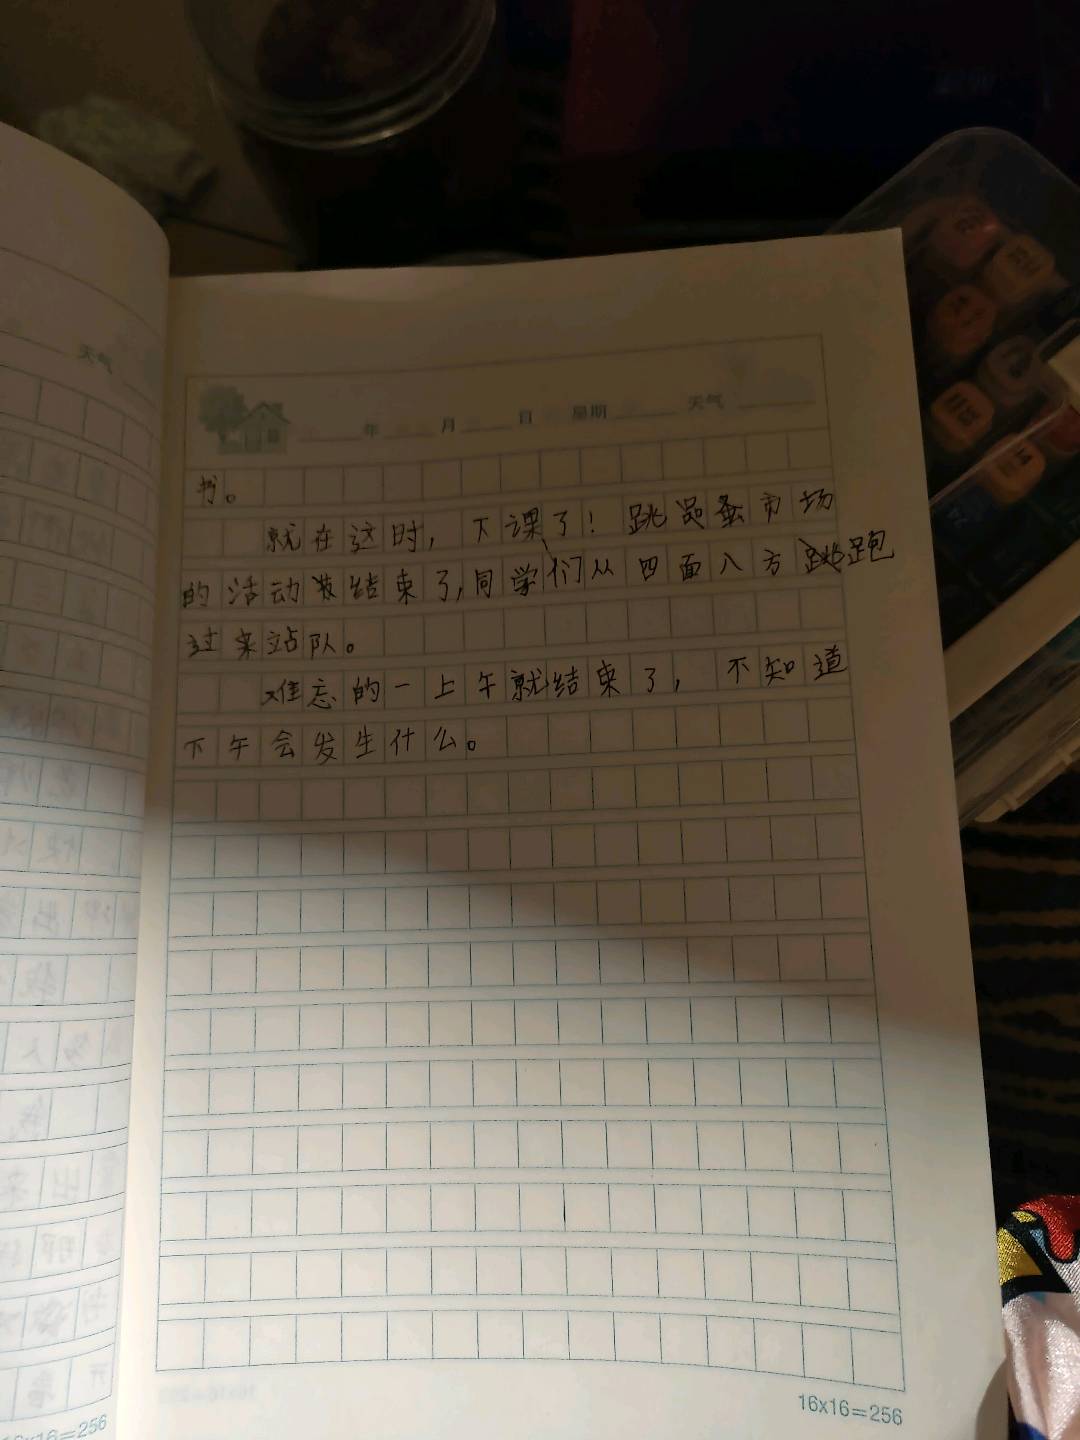 年 月 日 星期 天气
书。
就在这时，下课了！跳蚤市场
的活动结束了，同学们从四面八方跑
过来站队。
难忘的一上午就结束了，不知道
下午会发生什么。
16x16=256
天气
16x16=256